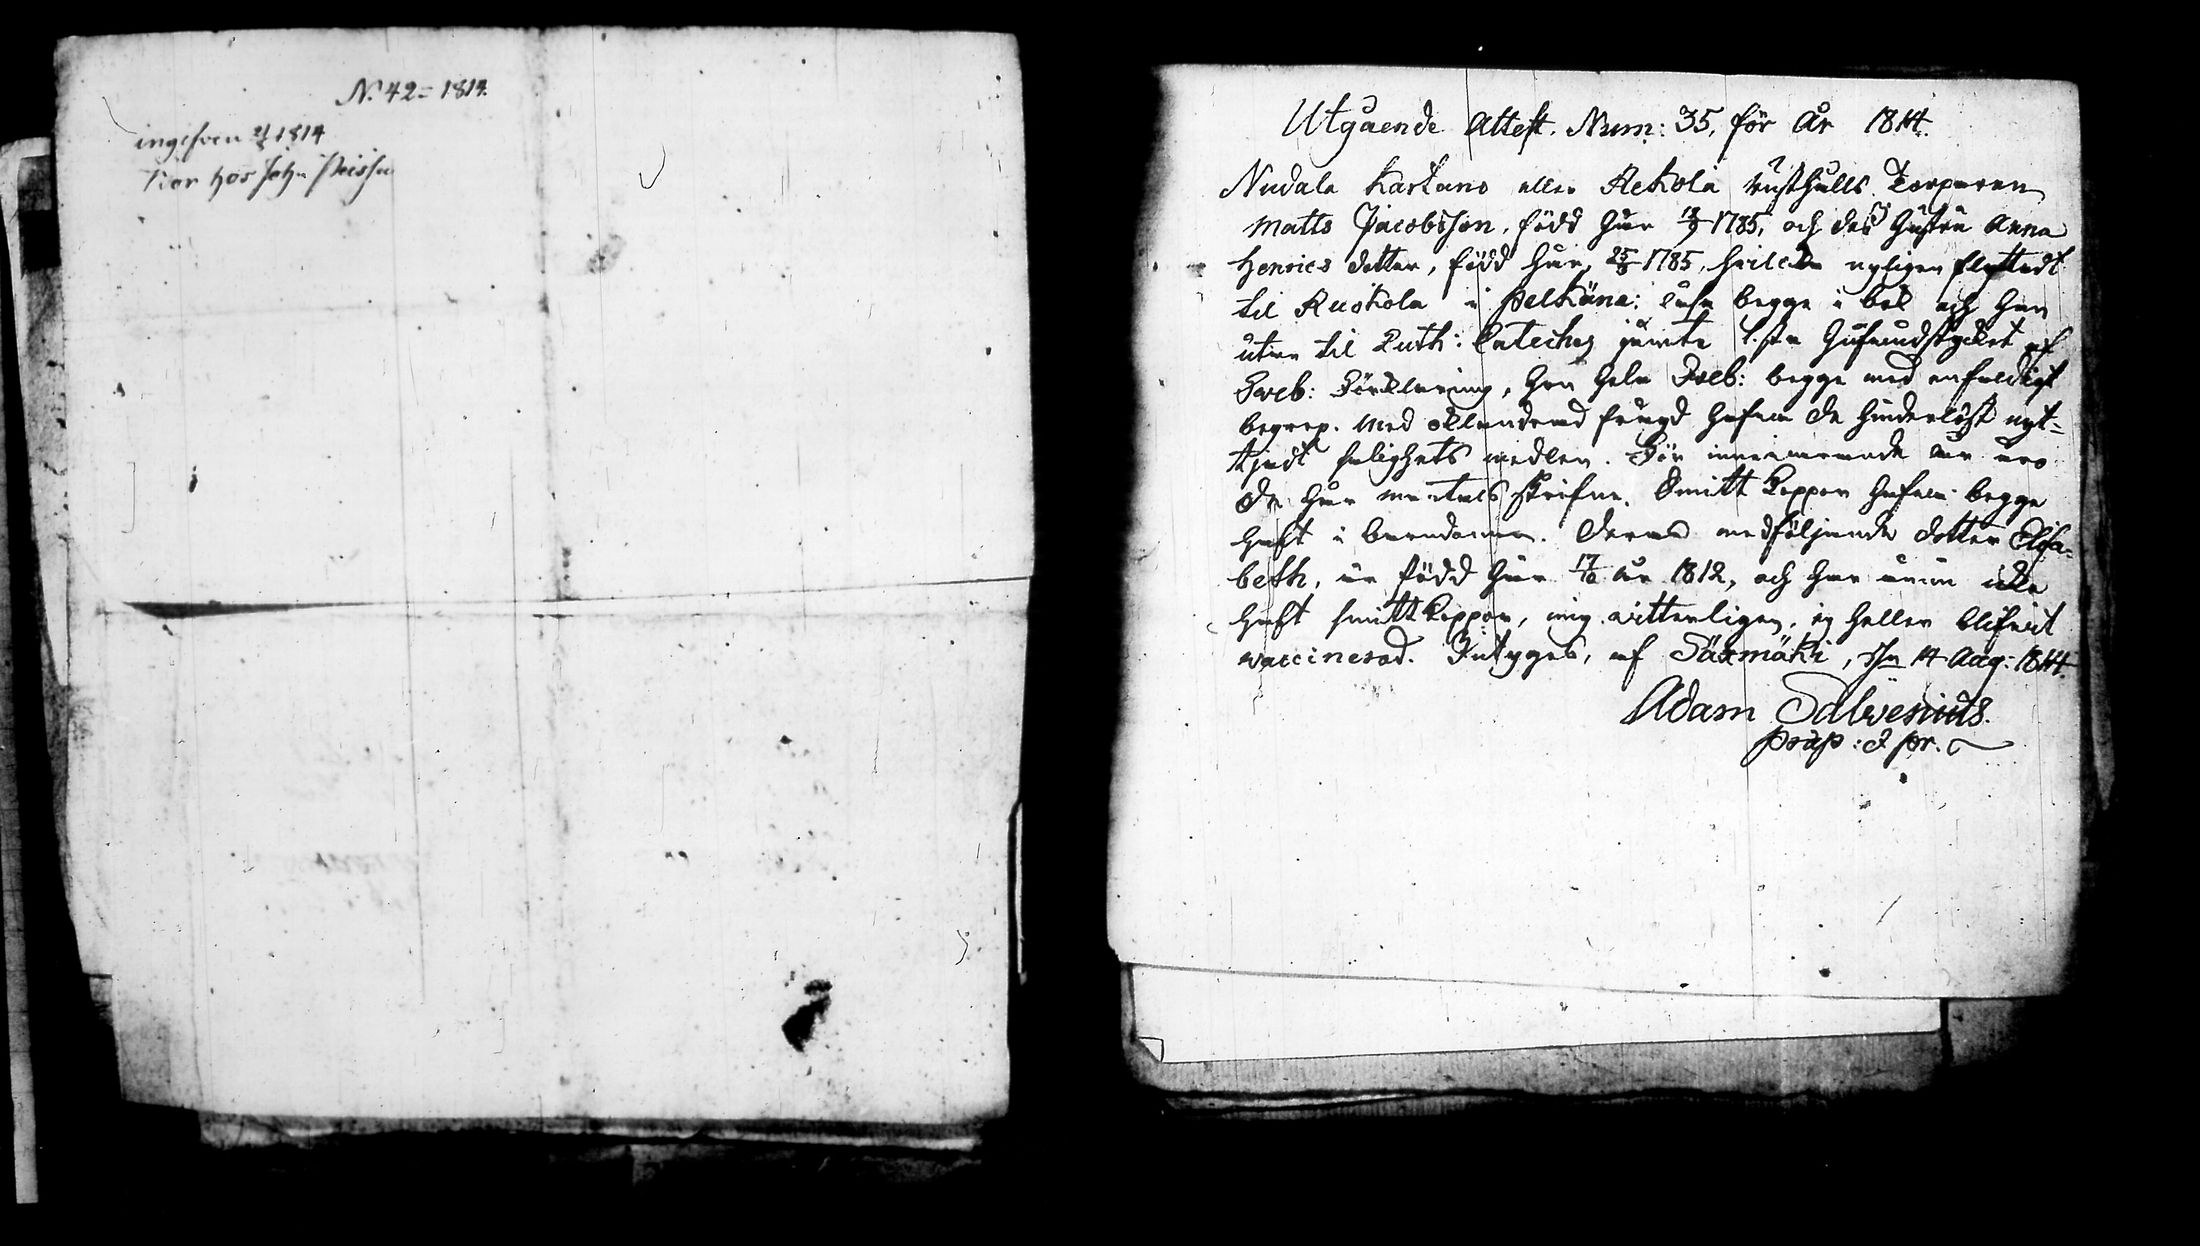 N. 42 = 1814.
1814
hos Joh:
Utgående Attest. Num: 35, för År 1814.
Nudala Kartano eller Rekola rusthålls Torparen
Matts Jacobsson, född här 1785, och des hustru Anna
Henrics dotter, född här 25/8 1785, hvilcka nyligen flyttadt
til Ruokola i Pelkäne: läsa begge i bok och han
utan til Luth: Catechs jämte 1.sta hufvudstycket af
Sveb: Förklaring, hon hela Sveb: begge med enfaldigt
begrep. Med oklandrad frägd hafva de hinderlöst nyt-
tjadt salighets medlen. För innevarande år äro
de här mantals skrifne. Smitt koppor hafva begge
haft i barndomen. Deras medföljande dotter Elisa-
beth, är född här 17/10 år 1812, och har ännu icke
haft smittkoppor, mig vitterligen, ej heller blifvit
vaccinerad. Intygas, af Sääxmäki, den 14 Aug: 1814.
Adam Salvenius.
Præp: & p:r.